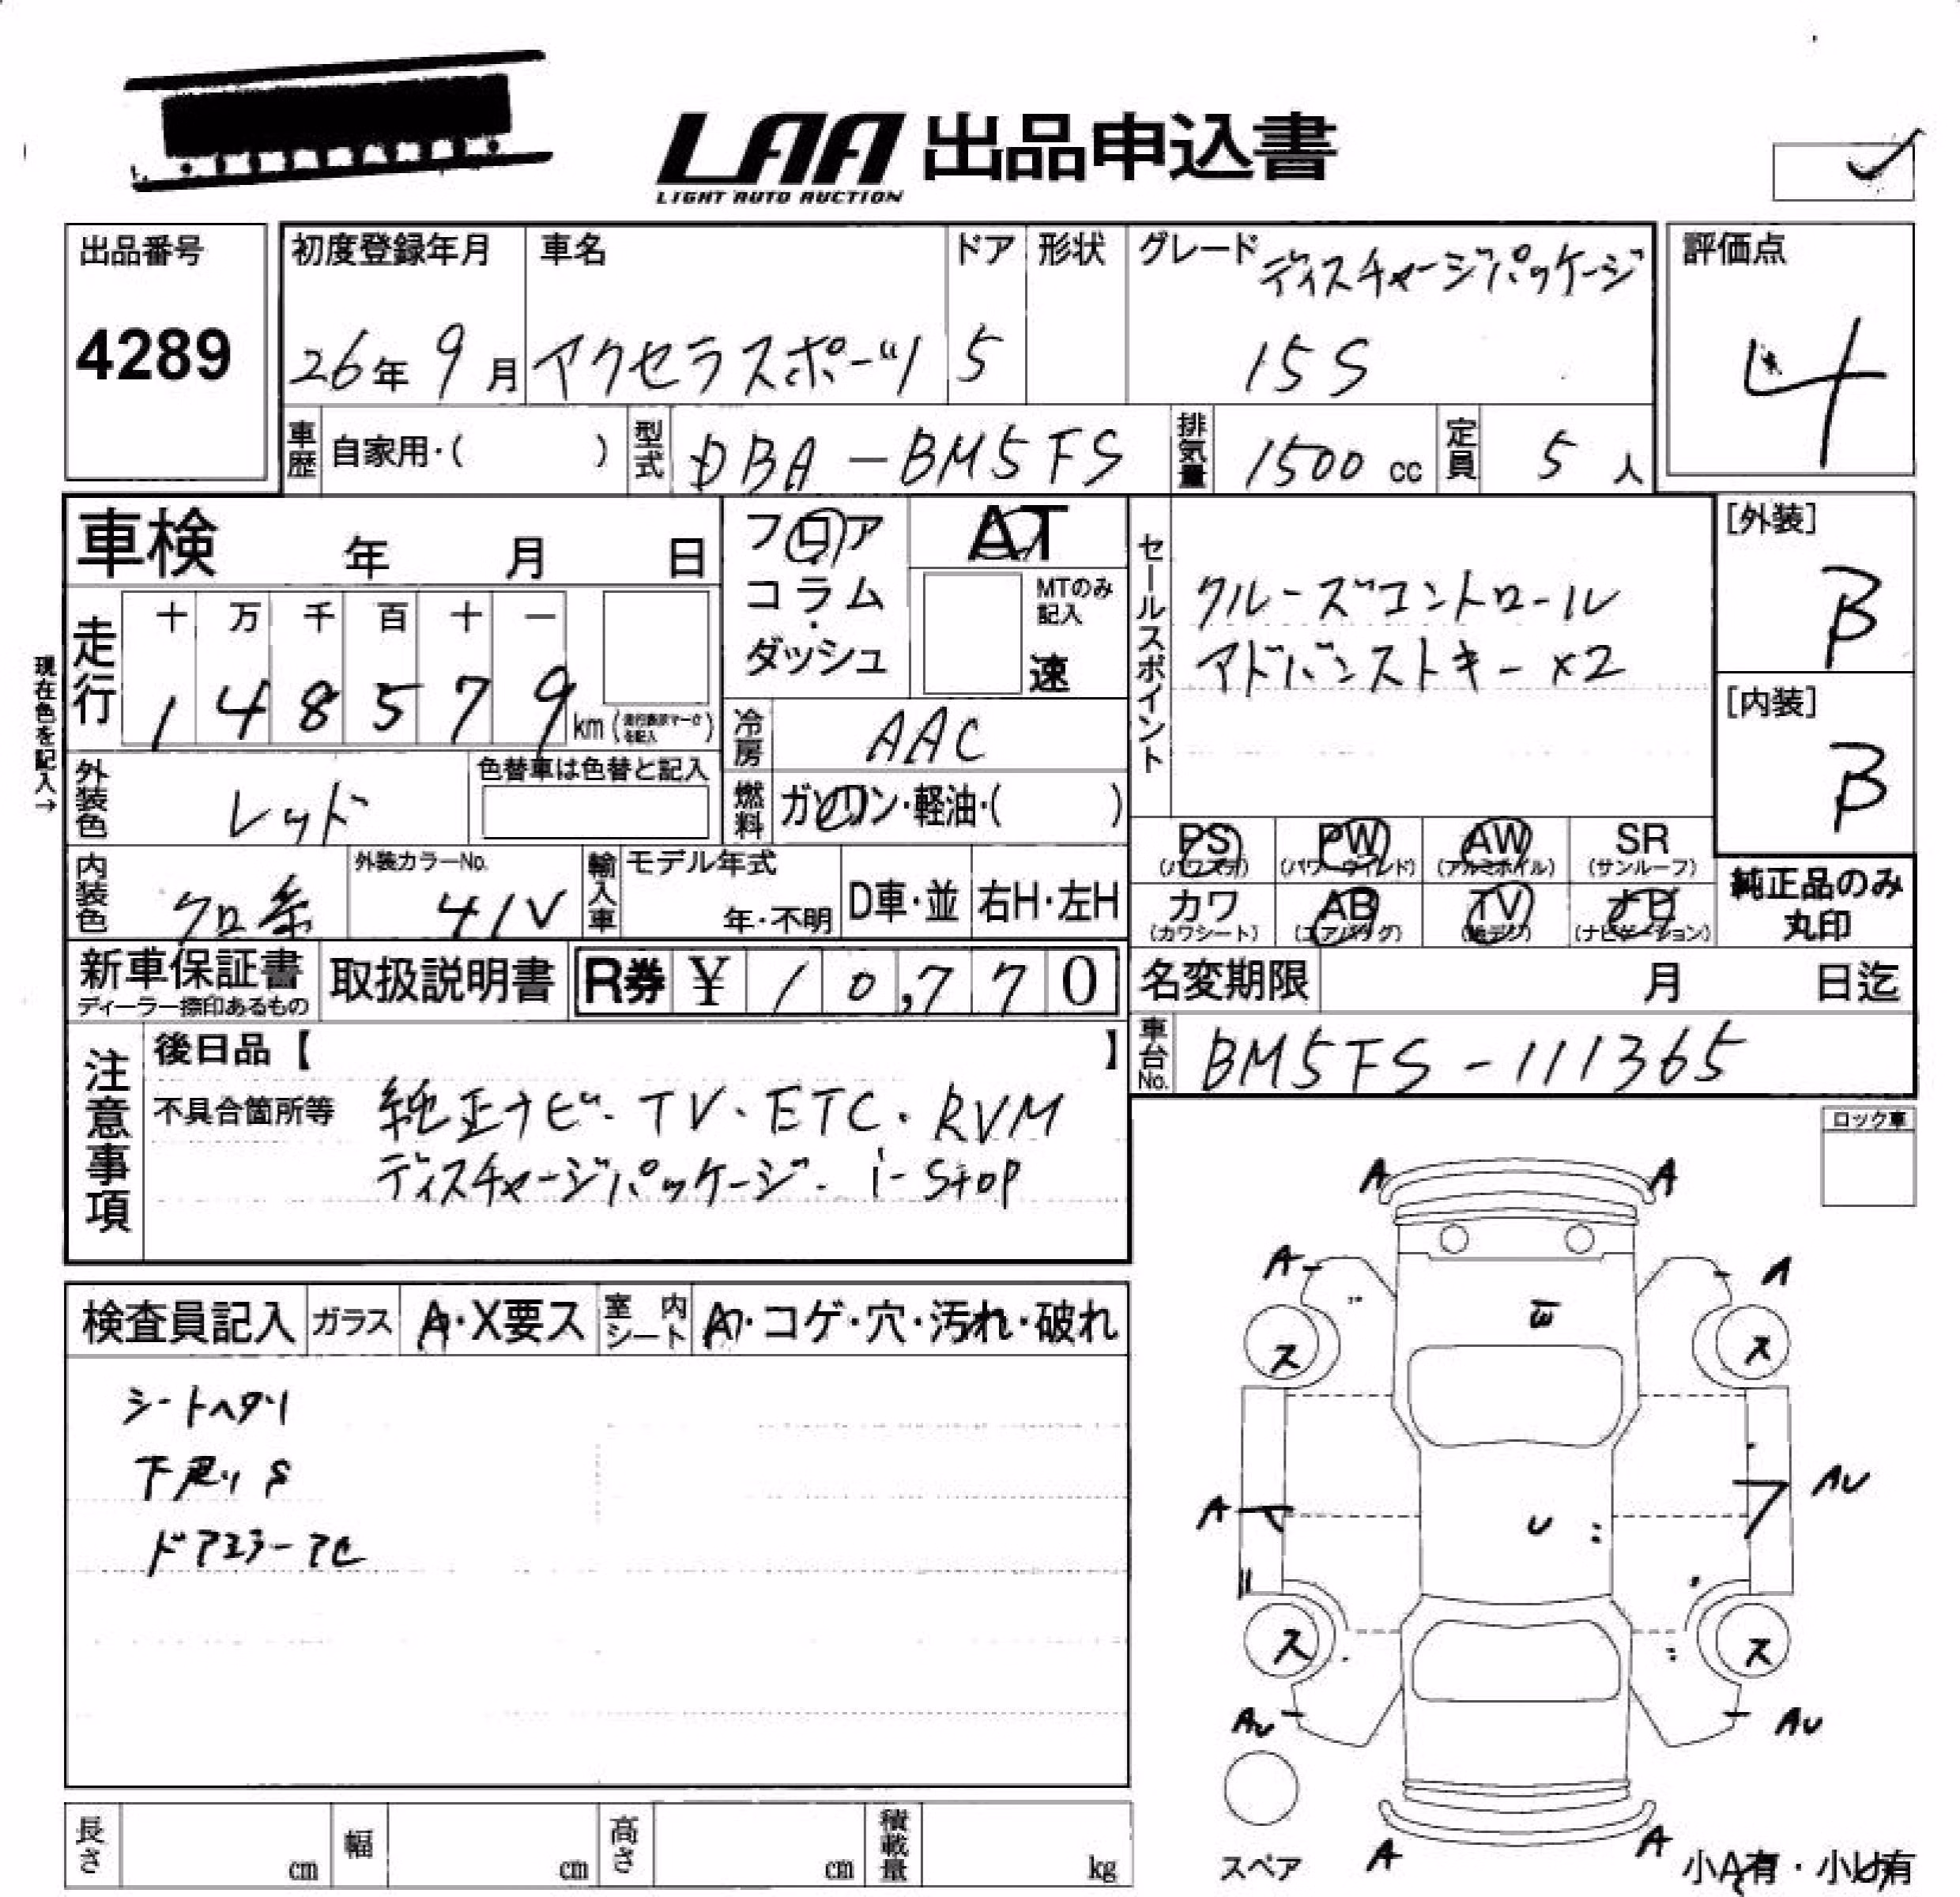 LAA 出品申込書
LIGHT AUTO AUCTION
出品番号
4289
初度登録年月
26年 9月
車名
アクセラスポーツ
ドア
5
形状
グレード ディスチャージパッケージ
15S
評価点
4
車歴 自家用・( )
型式 DBA-BM5FS
排気量 1500 cc
定員 5 人
車検 年 月 日
フロア
・
コラム
・
ダッシュ
AT
MTのみ
記入
速
セールスポイント
クルーズコントロール
アドバンストキー×2
[外装]
B
[内装]
B
現在色を記入→
走行
十 万 千 百 十 一
1 4 8 5 7 9 km
冷房 AAC
外装色 レッド
色替車は色替と記入
燃料 ガソリン・軽油・( )
PS AW SR
PW
(パワステ) (パワーウィンド) (アルミホイル) (サンルーフ)
カワ AB TV ナビ
(カワシート) (エアバッグ) (地デジ) (ナビゲーション)
純正品のみ
丸印
内装色 クロ系
外装カラーNo.
41V
輸入車
モデル年式
年・不明
D車・並
右H・左H
新車保証書
ディーラー捺印あるもの
取扱説明書
R券 ¥ 10,770
名変期限 月 日迄
車台No. BM5FS-111365
注意事項
後日品【 】
不具合箇所等 純正ナビ・TV・ETC・RVM
ディスチャージパッケージ・i-stop
ロック車
検査員記入 ガラス A・X要ス 室内シート ・コゲ・穴・汚れ・破れ
シートヘタリ
下廻りS
ドアミラー
A A
A A
ス ス
A AU
U
ス ス
AU AU
スペア
A A
小A有・小U有
長さ cm
幅 cm
高さ cm
積載量 kg